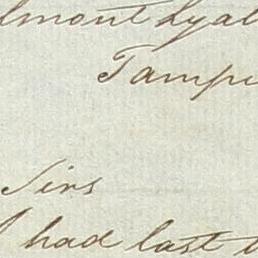 lmont Lyal
Tampi
Sirs
I had last t